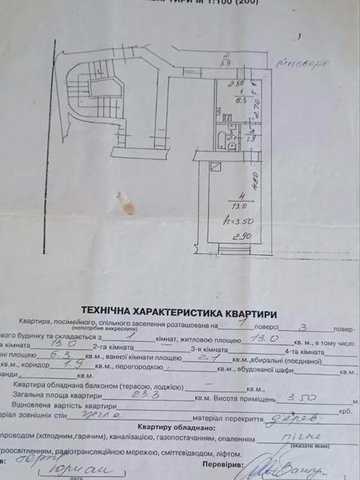 КВАРТИРИ М 1:100 (200)
1
6.3
4
13.0
h=3.50
2.90
ТЕХНІЧНА ХАРАКТЕРИСТИКА КВАРТИРИ
Квартира, посімейного, спільного заселення розташована на 1 поверсі 3
(непотрібне викреслити)
будинку та складається з 1 кімнат, житловою площею 13.0 кв.м., в тому числі
кімната 13.0 кв.м. 2-га кімната — кв.м., 3-я кімната кв.м. 4-та кімната
площею 6.3 кв.м., ванної кімнати площею 2.1 кв.м., вбиральні (поєднаної)
кв.м., коридор 1.9 кв.м., перегородкою кв.м., вбудованої шафи кв.м.
кв.м.
Квартира обладнана балконом (терасою, лоджією) — кв.м.
Загальна площа квартири 23.3 кв.м. Висота приміщень 3.50 м.
Відновлена вартість квартири
матеріал зовнішніх стін цегла матеріал перекриття дерев
Квартиру обладнано:
проводом (холодним, гарячим), каналізацією, газопостачанням, опаленням пічне
(вказати яким)
електроосвітленням, радіотрансляційною мережою, сміттєвідводом, ліфтом.
Перевірив: